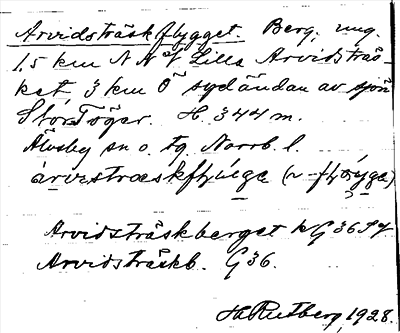 Arvidsträskflygget. Berg, ung.
1.5 km NNV Lilla Arvidsträs-
ket, 3 km Ö sydändan av sjön
Stor-Tögar. H. 344 m.
Älvsby sn o. tg Norrb. l.
Arvidsträskberget k G36SV
Arvidsträskb. G36.
H. Rutberg, 1928.